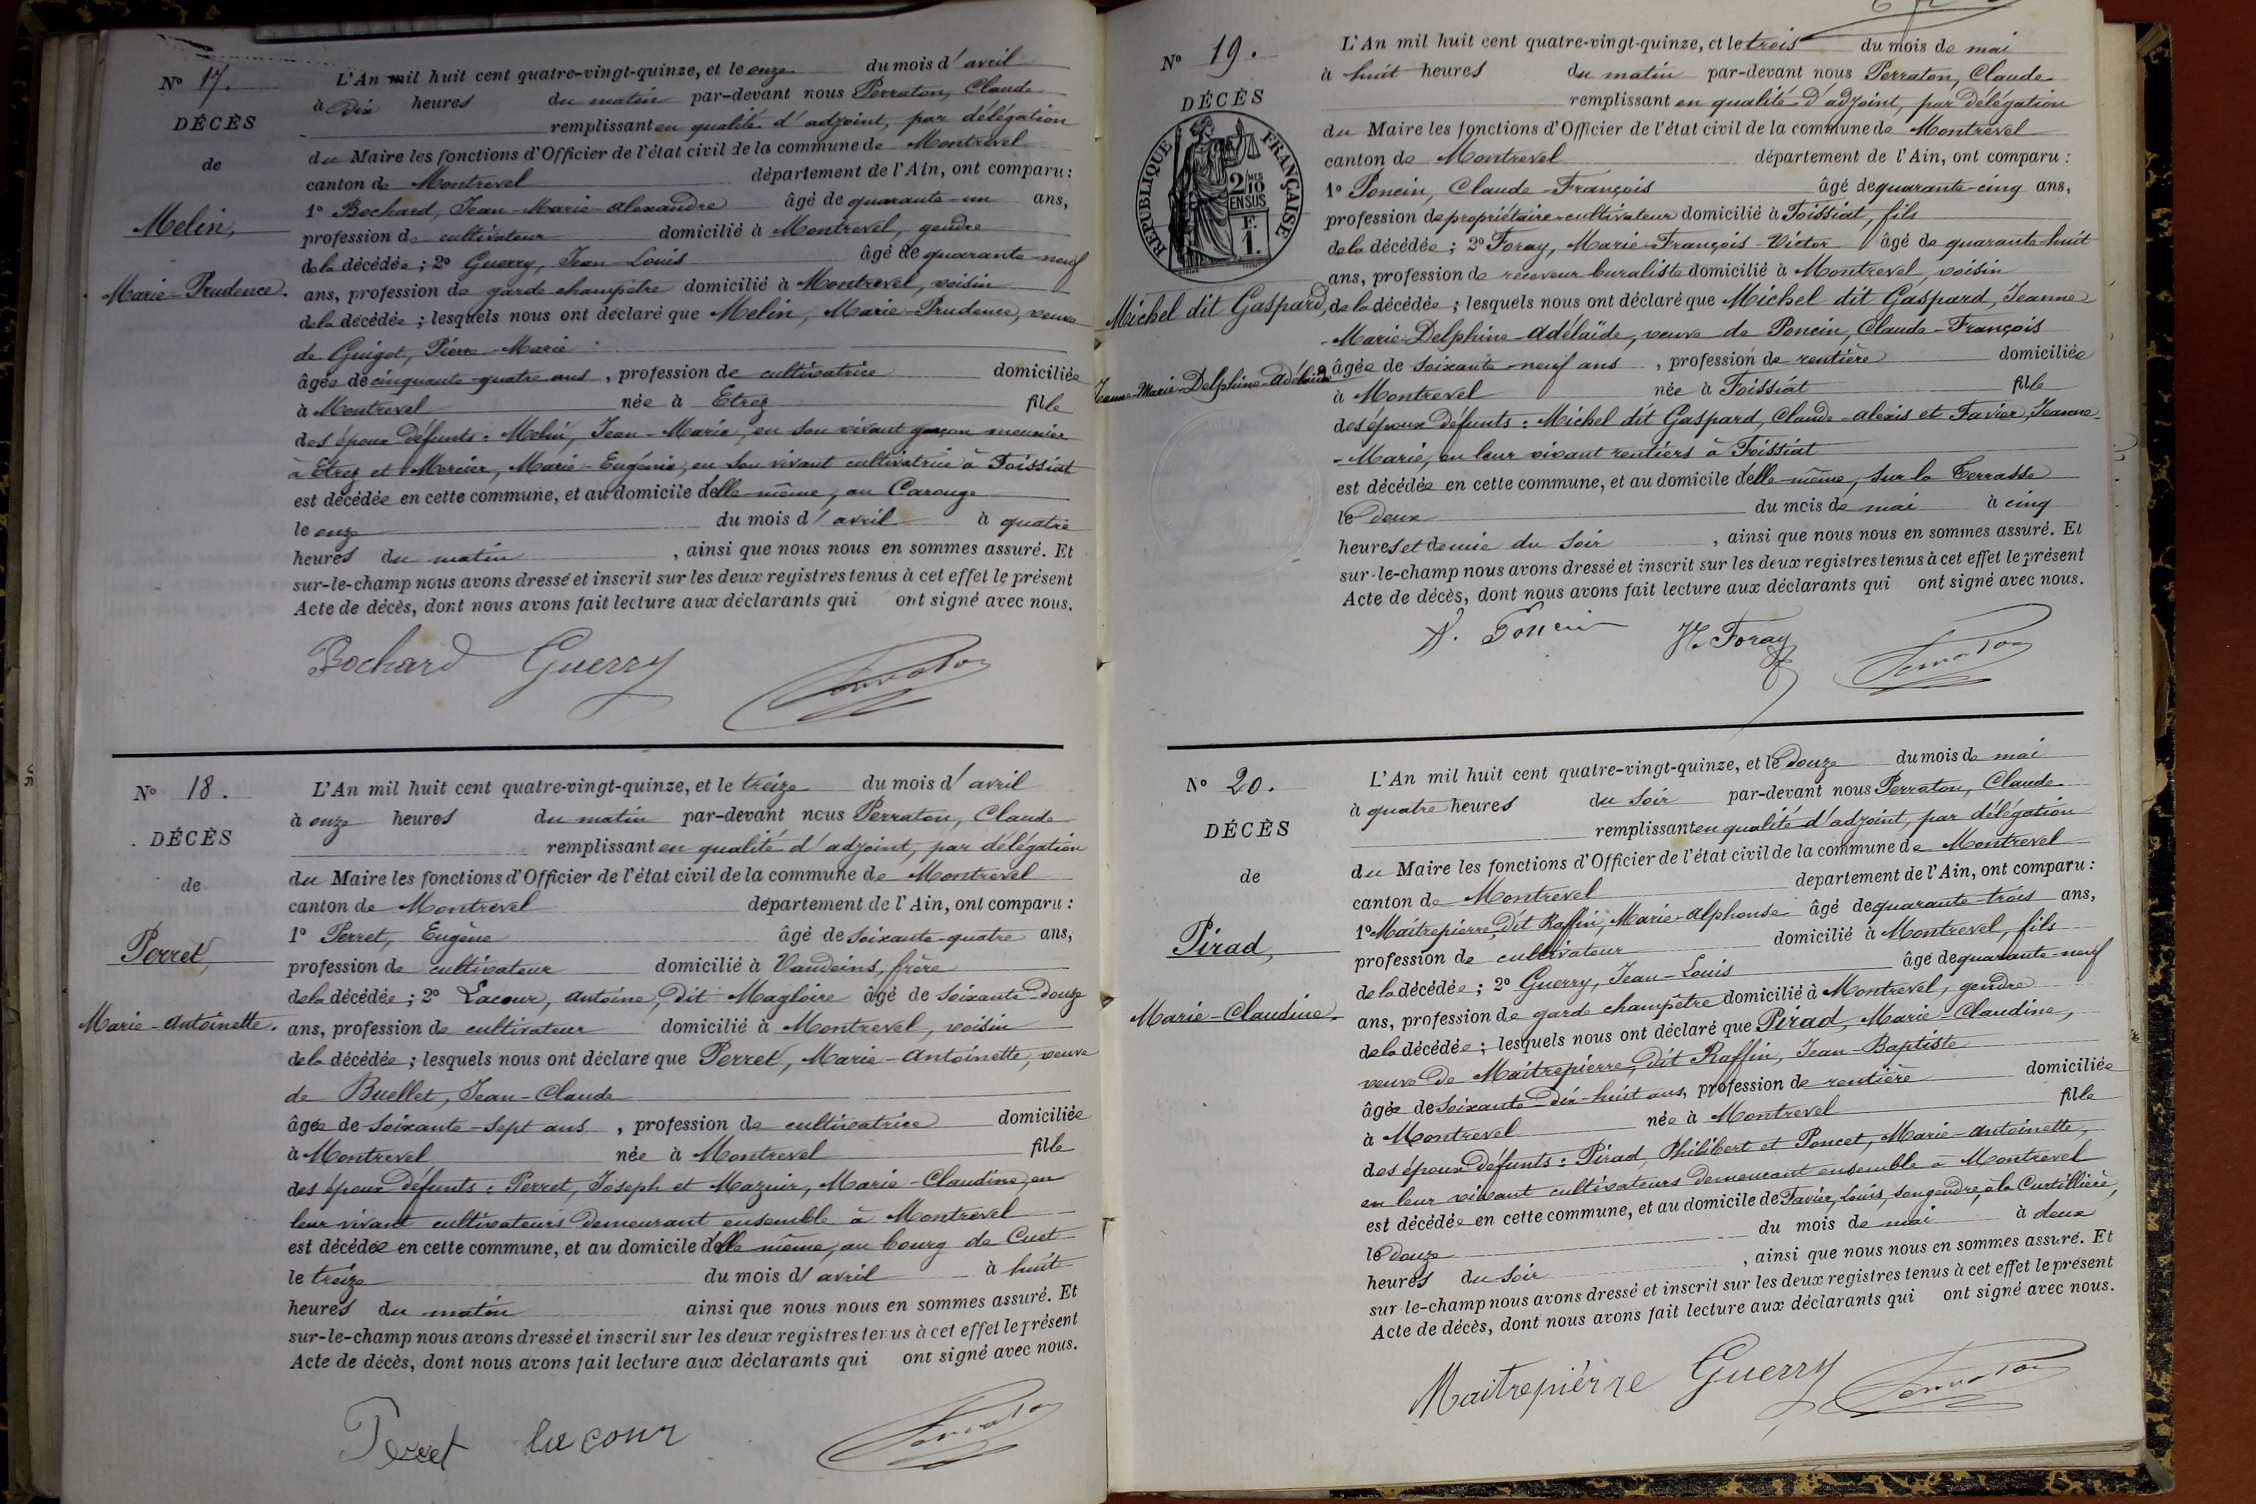 N° 17.
DÉCÈS
de
Melin,
Marie-Prudence.
L'An mil huit cent quatre-vingt-quinze, et le onze du mois d'avril
à dix heures du matin par-devant nous Perraton, Claude
remplissant en qualité d'adjoint, par délégation
du Maire les fonctions d'Officier de l'état civil de la commune de Montrevel
canton de Montrevel département de l'Ain, ont comparu :
1° Bochard, Jean-Marie-Alexandre âgé de quarante-un ans,
profession de cultivateur domicilié à Montrevel, gendre
de la décédée ; 2° Guerry, Jean-Louis âgé de quarante-neuf
ans, profession de garde champêtre domicilié à Montrevel, voisin
de la décédée ; lesquels nous ont déclaré que Melin, Marie-Prudence, veuve
de Guigot, Pierre-Marie
âgée de cinquante-quatre ans, profession de cultivatrice domiciliée
à Montrevel née à Etrez fille
des époux défunts : Melin, Jean-Marie, en son vivant garçon meunier
à Etrez et Mercier, Marie-Eugénie, en son vivant cultivatrice à Foissiat
est décédée en cette commune, et au domicile d'elle-même, au Carouge
le onze du mois d'avril à quatre
heures du matin, ainsi que nous nous en sommes assuré. Et
sur-le-champ nous avons dressé et inscrit sur les deux registres tenus à cet effet le présent
Acte de décès, dont nous avons fait lecture aux déclarants qui ont signé avec nous.
Bochard Guerry Perraton
N° 18.
DÉCÈS
de
Perret,
Marie-Antoinette.
L'An mil huit cent quatre-vingt-quinze, et le treize du mois d'avril
à onze heures du matin par-devant nous Perraton, Claude
remplissant en qualité d'adjoint, par délégation
du Maire les fonctions d'Officier de l'état civil de la commune de Montrevel
canton de Montrevel département de l'Ain, ont comparu :
1° Perret, Eugène âgé de soixante-quatre ans,
profession de cultivateur domicilié à Vandeins, frère
de la décédée ; 2° Lacour, Antoine, dit Magloire âgé de soixante-douze
ans, profession de cultivateur domicilié à Montrevel, voisin
de la décédée ; lesquels nous ont déclaré que Perret, Marie-Antoinette, veuve
de Buellet, Jean-Claude
âgée de soixante-sept ans, profession de cultivatrice domiciliée
à Montrevel née à Montrevel fille
des époux défunts : Perret, Joseph et Mazuir, Marie-Claudine, en
leur vivant cultivateurs demeurant ensemble à Montrevel
est décédée en cette commune, et au domicile d'elle-même, au bourg de Cuet
le treize du mois d'avril à huit
heures du matin ainsi que nous nous en sommes assuré. Et
sur-le-champ nous avons dressé et inscrit sur les deux registres tenus à cet effet le présent
Acte de décès, dont nous avons fait lecture aux déclarants qui ont signé avec nous.
Perret lacour Perraton
N° 19.
DÉCÈS
RÉPUBLIQUE FRANÇAISE
2/10 MES
EN SUS
F.
1.
Michel dit Gaspard,
Jeanne-Marie-Delphine-Adélaïde
L'An mil huit cent quatre-vingt-quinze, et le trois du mois de mai
à huit heures du matin par-devant nous Perraton, Claude
remplissant en qualité d'adjoint, par délégation
du Maire les fonctions d'Officier de l'état civil de la commune de Montrevel
canton de Montrevel département de l'Ain, ont comparu :
1° Poncin, Claude-François âgé de quarante-cinq ans,
profession de propriétaire-cultivateur domicilié à Foissiat, fils
de la décédée ; 2° Foray, Marie-François-Victor âgé de quarante-huit
ans, profession de receveur buraliste domicilié à Montrevel, voisin
de la décédée ; lesquels nous ont déclaré que Michel dit Gaspard, Jeanne
-Marie-Delphine-Adélaïde, veuve de Poncin, Claude-François
âgée de soixante-neuf ans, profession de rentière domiciliée
à Montrevel née à Foissiat fille
des époux défunts : Michel dit Gaspard, Claude-Alexis et Favier, Jeanne-
-Marie, en leur vivant rentiers à Foissiat
est décédée en cette commune, et au domicile d'elle-même, sur la Terrasse
le deux du mois de mai à cinq
heures et demie du soir, ainsi que nous nous en sommes assuré. Et
sur-le-champ nous avons dressé et inscrit sur les deux registres tenus à cet effet le présent
Acte de décès, dont nous avons fait lecture aux déclarants qui ont signé avec nous.
Poncin Foray Perraton
N° 20.
DÉCÈS
de
Pirad,
Marie-Claudine.
L'An mil huit cent quatre-vingt-quinze, et le douze du mois de mai
à quatre heures du soir par-devant nous Perraton, Claude
remplissant en qualité d'adjoint, par délégation
du Maire les fonctions d'Officier de l'état civil de la commune de Montrevel
canton de Montrevel département de l'Ain, ont comparu :
1° Maitrepierre, dit Raffin, Marie-Alphonse âgé de quarante-trois ans,
profession de cultivateur domicilié à Montrevel, fils
de la décédée ; 2° Guerry, Jean-Louis âgé de quarante-neuf
ans, profession de garde champêtre domicilié à Montrevel, gendre
de la décédée ; lesquels nous ont déclaré que Pirad, Marie-Claudine,
veuve de Maitrepierre, dit Raffin, Jean-Baptiste
âgée de soixante-dix-huit ans, profession de rentière domiciliée
à Montrevel née à Montrevel fille
des époux défunts : Pirad, Philibert et Poncet, Marie-Antoinette,
en leur vivant cultivateurs demeurant ensemble à Montrevel
est décédée en cette commune, et au domicile de Favier, Louis, son gendre, à la Curtillière,
le douze du mois de mai à deux
heures du soir, ainsi que nous nous en sommes assuré. Et
sur-le-champ nous avons dressé et inscrit sur les deux registres tenus à cet effet le présent
Acte de décès, dont nous avons fait lecture aux déclarants qui ont signé avec nous.
Maitrepièrre Guerry Perraton